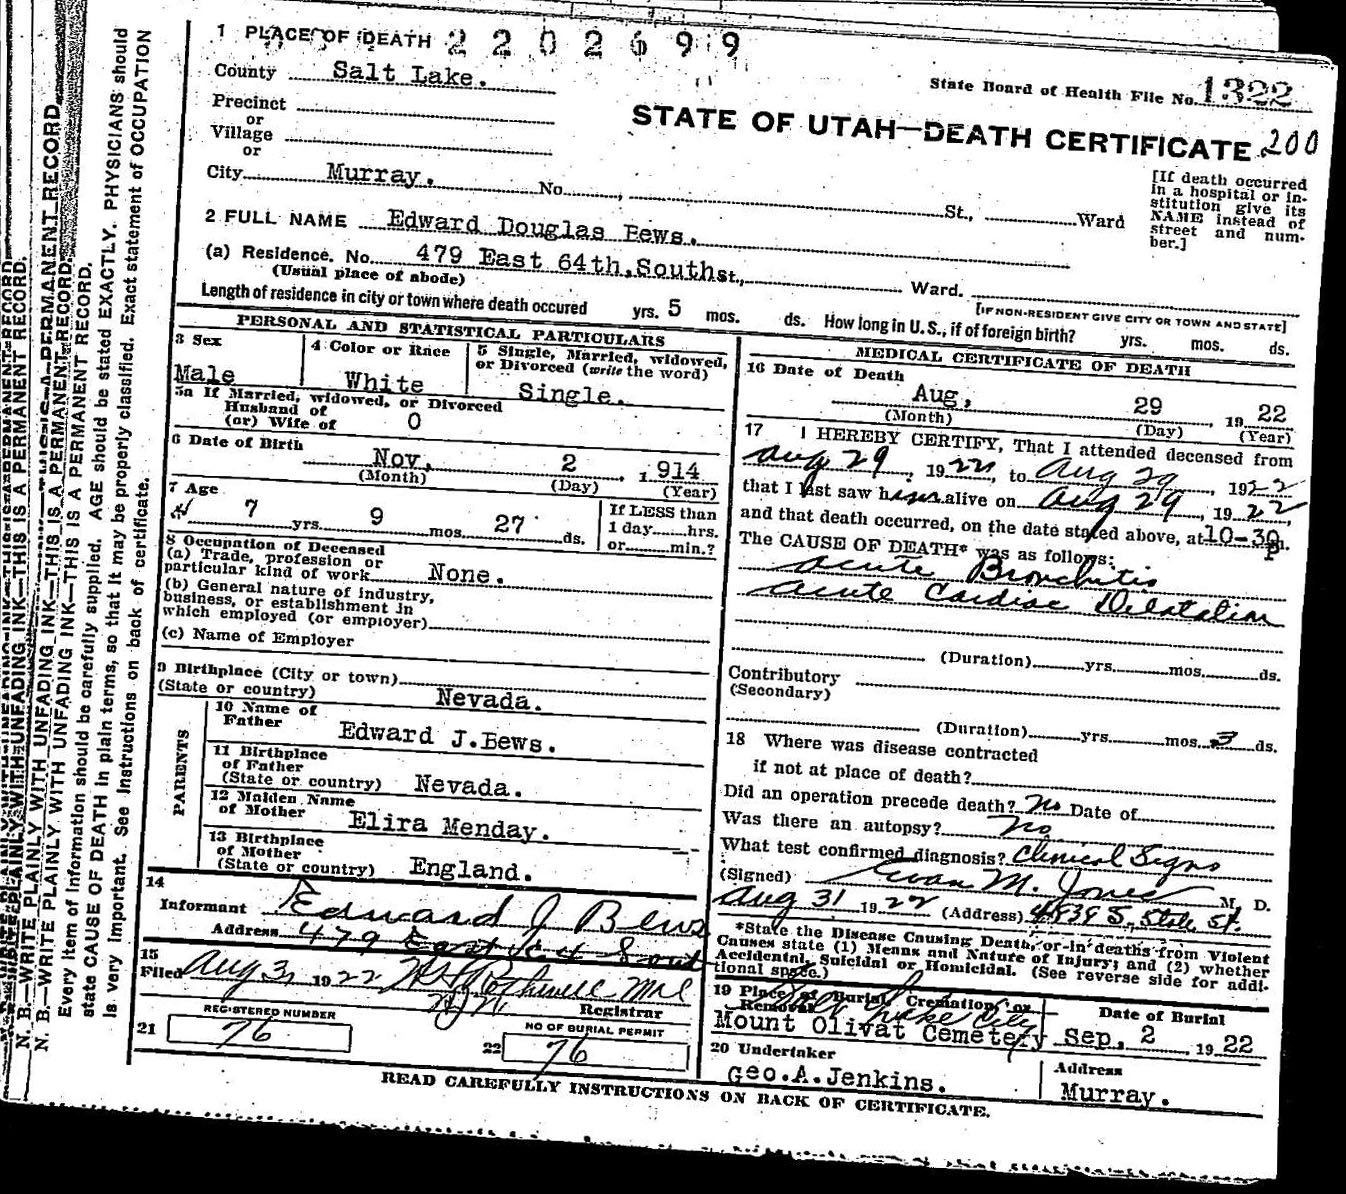 1 PLACE OF DEATH 2202699
County Salt Lake.
State Board of Health File No. 1322
Precinct
or
Village
or
STATE OF UTAH—DEATH CERTIFICATE 200
City Murray. No. , St., Ward
[If death occurred
in a hospital or in-
stitution give its
NAME instead of
street and num-
ber.]
2 FULL NAME Edward Douglas Bews.
(a) Residence. No. 479 East 64th,South St., Ward.
(Usual place of abode)
[IF NON-RESIDENT GIVE CITY OR TOWN AND STATE]
Length of residence in city or town where death occured yrs. 5 mos. ds. How long in U. S., if of foreign birth? yrs. mos. ds.
PERSONAL AND STATISTICAL PARTICULARS
3 Sex
Male
4 Color or Race
White
5 Single, Married, widowed,
or Divorced (write the word)
Single.
5a If Married, widowed, or Divorced
Husband of
(or) Wife of O
6 Date of Birth
Nov, 2 , 1914
(Month) (Day) (Year)
7 Age
7 yrs. 9 mos. 27 ds.
If LESS than
1 day hrs.
or min.?
8 Occupation of Deceased
(a) Trade, profession or
particular kind of work None.
(b) General nature of industry,
business, or establishment in
which employed (or employer)
(c) Name of Employer
9 Birthplace (City or town)
(State or country) Nevada.
PARENTS
10 Name of
Father Edward J.Bews.
11 Birthplace
of Father
(State or country) Nevada.
12 Maiden Name
of Mother Elira Menday.
13 Birthplace
of Mother
(State or country) England.
14
Informant Edward J Bews
Address 479 East 64 Sout
15
Filed Aug 31 1922
Registrar
REGISTERED NUMBER
21 76
NO OF BURIAL PERMIT
22 76
MEDICAL CERTIFICATE OF DEATH
16 Date of Death
Aug, 29 1922
(Month) (Day) (Year)
17 I HEREBY CERTIFY, That I attended deceased from
Aug 29 , 1922, to Aug 29 , 1922
that I last saw him alive on Aug 29 , 1922,
and that death occurred, on the date stated above, at 10-30 P m.
The CAUSE OF DEATH* was as follows:
Acute Bronchitis
Acute Cardiac Dilatation
(Duration) yrs. mos. ds.
Contributory
(Secondary)
(Duration) yrs. mos. 3 ds.
18 Where was disease contracted
if not at place of death?
Did an operation precede death? No Date of
Was there an autopsy? No
What test confirmed diagnosis? Clinical Signs
(Signed) Evan M. Jones M. D.
Aug 31 1922 (Address) 4839 S. State St.
*State the Disease Causing Death, or in deaths from Violent
Causes state (1) Means and Nature of Injury; and (2) whether
Accidental, Suicidal or Homicidal. (See reverse side for addi-
tional space.)
19 Place of Burial Cremation or
Removal Salt Lake City
Mount Olivat Cemetery
Date of Burial
Sep, 2 1922
20 Undertaker
Geo.A.Jenkins.
Address
Murray.
READ CAREFULLY INSTRUCTIONS ON BACK OF CERTIFICATE.
N. B.—WRITE PLAINLY WITH UNFADING INK—THIS IS A PERMANENT RECORD.
N. B.—WRITE PLAINLY WITH UNFADING INK—THIS IS A PERMANENT RECORD.
Every item of information should be carefully supplied. AGE should be stated EXACTLY. PHYSICIANS should
state CAUSE OF DEATH in plain terms, so that it may be properly classified. Exact statement of OCCUPATION
is very important. See instructions on back of certificate.